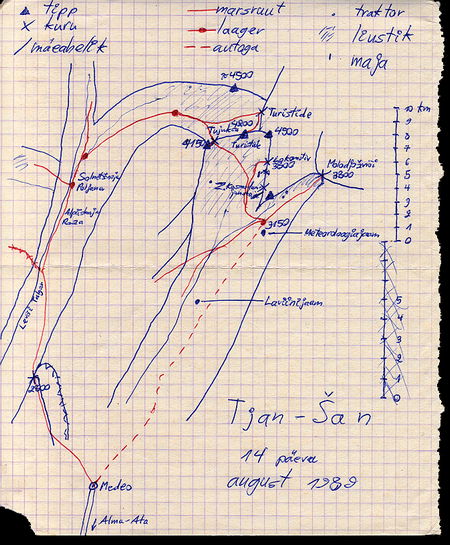 tipp
kuru
mäeahelik
marsruut
laager
autoga
traktor
liustik
maja
~4500
Turistide
10 km
9
8
7
6
5
4
3
2
1
0
Tujuksu
4150
4200
Turistide
4500
Lokomotiv
3800
Molodjožnõi
3800
3150
Meteoroloogiajaam
Laviinijaam
Alpiiniste
Roza
Leoti Talgar
5
4
3
2
1
0
Tjan-Šan
14 päeva
august 1989
Medeo
Alma-Ata